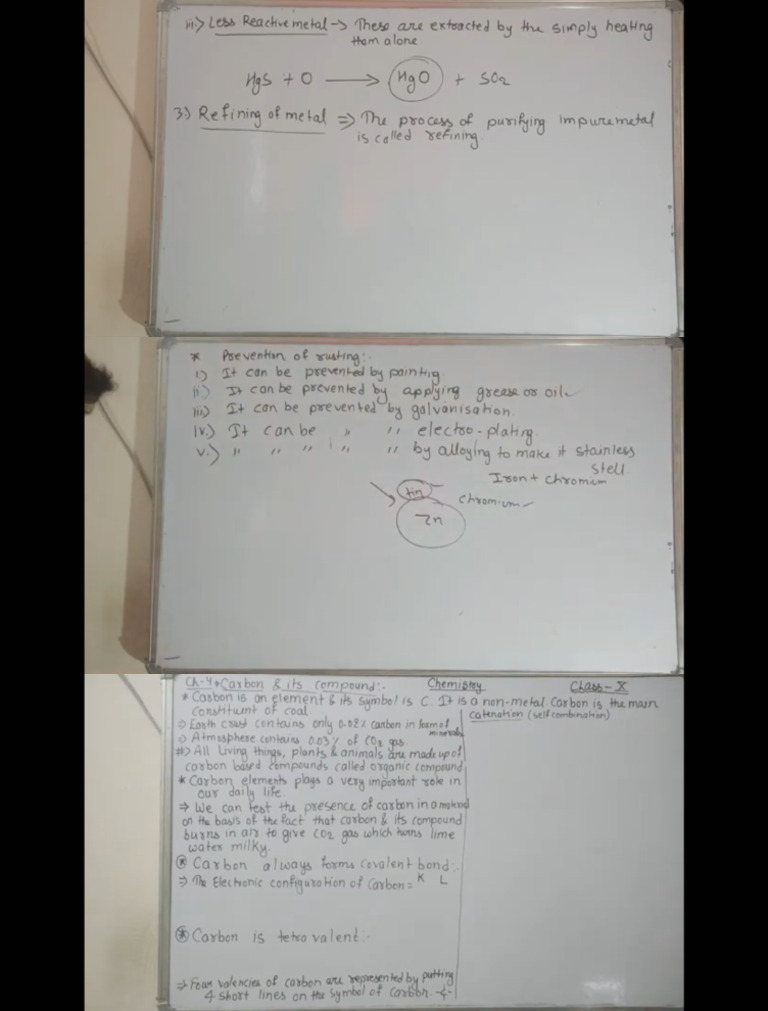 iii> Less Reactive metal → These are extracted by the simply heating
them alone
HgS + O → HgO + SO2
3) Refining of metal ⇒ The process of purifying impure metal
is called refining.
* Prevention of rusting:-
i) It can be prevented by painting
ii) It can be prevented by applying grease or oil
iii) It can be prevented by galvanisation.
iv.) It can be " " electro-plating.
v.) " " " " " by alloying to make it stainless
stell
Iron + chromium
tin
chromium
Zn
Ch-4 → Carbon & its compound:- Chemistry Class-X
* Carbon is an element & its symbol is C. It is a non-metal. Carbon is the main
constituent of coal.
Catenation (self combination)
⇒ Earth crust contains only 0.02% carbon in form of
minerals
⇒ Atmosphere contains 0.03% of CO2 gas
⇒ All Living things, plants & animals are made up of
carbon based compounds called organic compound
* Carbon elements plays a very important role in
our daily life.
⇒ We can test the presence of carbon in a material
on the basis of the fact that carbon & its compound
burns in air to give CO2 gas which turns lime
water milky.
* Carbon always forms covalent bond:-
⇒ The Electronic configuration of Carbon = K L
* Carbon is tetra valent:-
⇒ Four valencies of carbon are represented by putting
4 short lines on the symbol of carbon. -C-